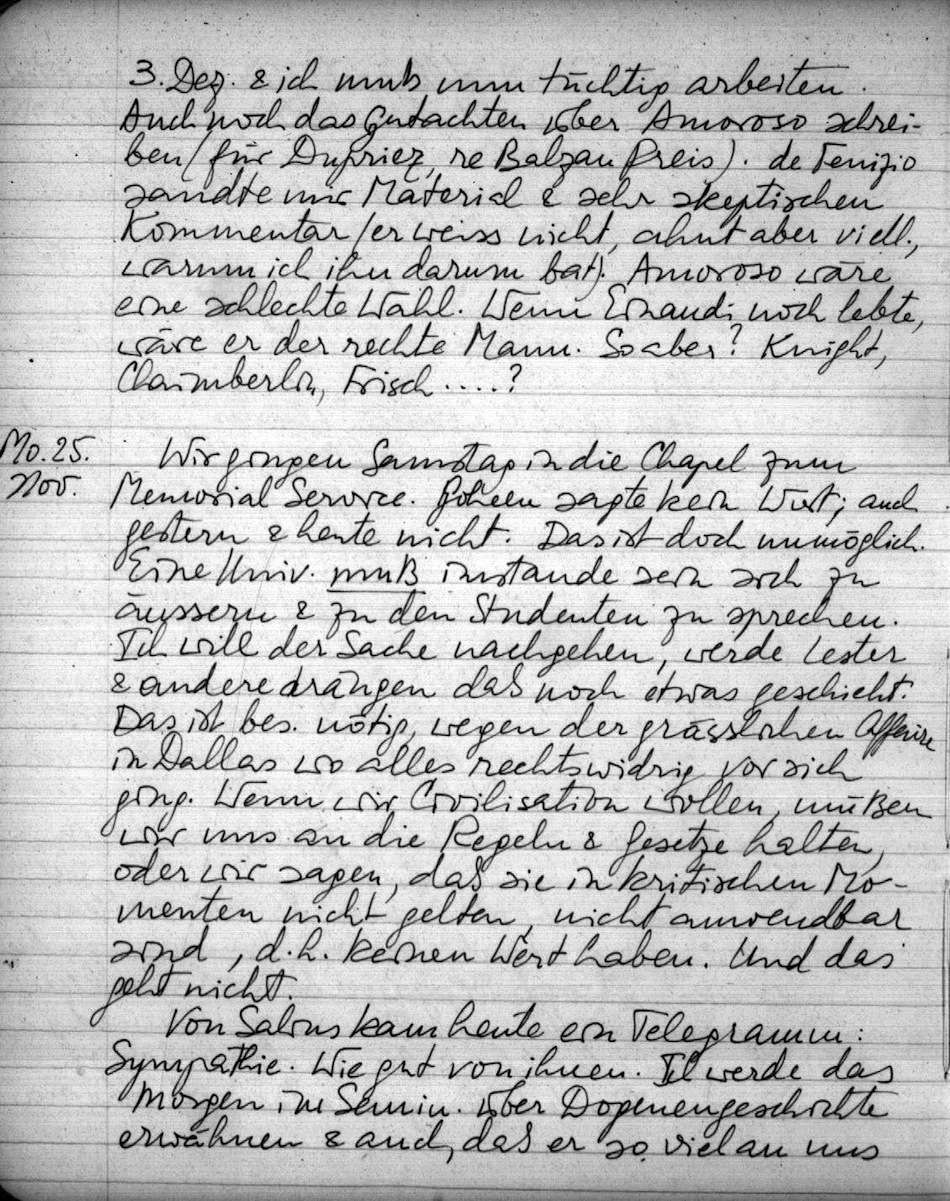 3. Dez. & ich muß nun tüchtig arbeiten.
Auch noch das Gutachten über Amoroso schrei-
ben (für Dupriez, re Balzan Preis). de Fenizio
sandte mir Material & sehr skeptischen
Kommentar (er weiss nicht, ahnt aber viell.,
warum ich ihn darum bat). Amoroso wäre
eine schlechte Wahl. Wenn Einaudi noch lebte,
wäre er der rechte Mann. So aber? Knight,
Chaimberlin, Frisch ....?
Mo. 25.
Nov.
Wir gingen Samstag in die Chapel zum
Memorial Service. Goheen sagte kein Wort; auch
gestern & heute nicht. Das ist doch unmöglich.
Eine Univ. muß imstande sein sich zu
äussern & zu den Studenten zu sprechen.
Ich will der Sache nachgehen, werde Lester
& andere drängen daß noch etwas geschieht.
Das ist bes. nötig, wegen der grässlichen Affaire
in Dallas wo alles rechtswidrig vor sich
ging. Wenn wir Civilisation wollen, müßen
wir uns an die Regeln & Gesetze halten,
oder wir sagen, daß sie in kritischen Mo-
menten nicht gelten, nicht anwendbar
sind, d.h. keinen Wert haben. Und das
geht nicht.
Von Salins kam heute ein Telegramm:
Sympathie. Wie gut von ihnen. Ich werde das
Morgen im Semin. über Dogmengeschichte
erwähnen & auch, daß er so viel an uns